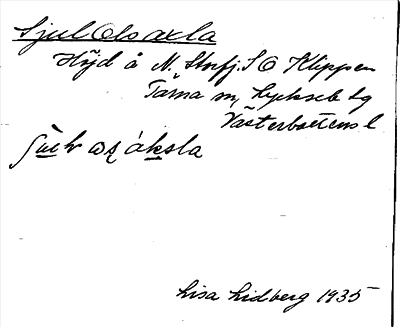 Sjul Olsaxla
Höjd å N. Storfj. S O Klippen
Tärna sn, Lycksele lg
Västerbottens l
áksla
Lisa Lidberg 1935